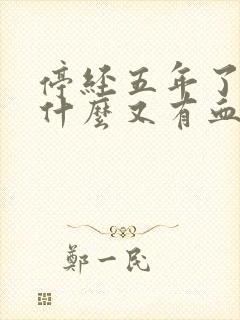 停經五年了
什麼又有血
鄭一民